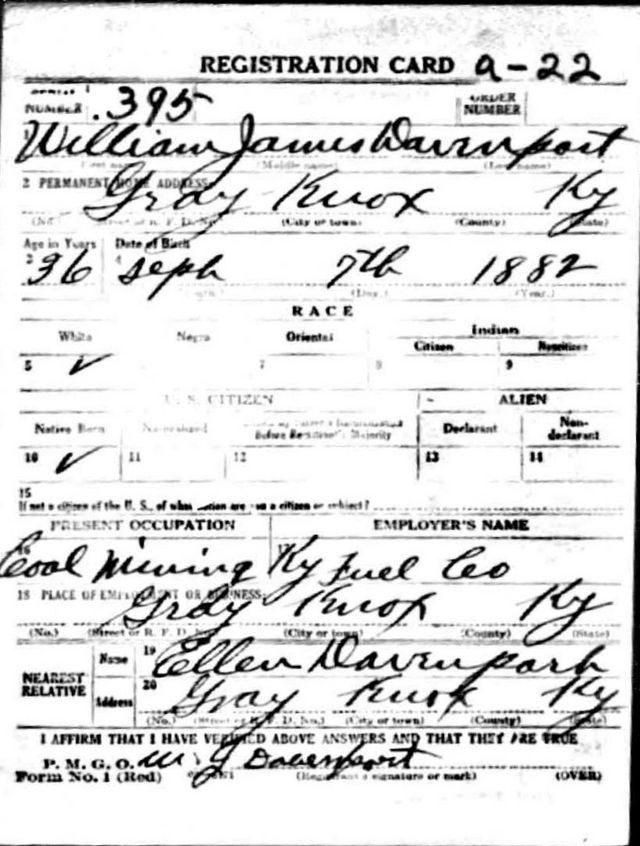 REGISTRATION CARD a-22
NUMBER 395 ORDER NUMBER
William James Davenport
(Middle name) (Last name)
2 PERMANENT HOME ADDRESS
Gray Knox Ky
(No.) (Street or R. F. D. No.) (City or town) (County) (State)
Age in Years Date of Birth
3 36 4 Seph 7th 1882
(Day.) (Year.)
RACE
White Negro Oriental Indian
Citizen Noncitizen
5 ✓ 7 8 9
U. S. CITIZEN ALIEN
Native Born Naturalized Before Registrant's Majority Declarant Non-declarant
10 ✓ 11 12 13 14
15
If not a citizen of the U. S., of what nation are you a citizen or subject?
PRESENT OCCUPATION EMPLOYER'S NAME
Coal Mining Ky Fuel Co
18 PLACE OF EMPLOYMENT OR BUSINESS
Gray Knox Ky
(No.) (Street or R. F. D. No.) (City or town) (County) (State)
NEAREST RELATIVE Name 19 Ellen Davenparh
Address 20 Gray Knox Ky
(No.) (Street or R. F. D. No.) (City or town) (County) (State)
I AFFIRM THAT I HAVE VERIFIED ABOVE ANSWERS AND THAT THEY ARE TRUE
P. M. G. O. W. J Davenport
Form No. 1 (Red) (Registrant's signature or mark) (OVER)